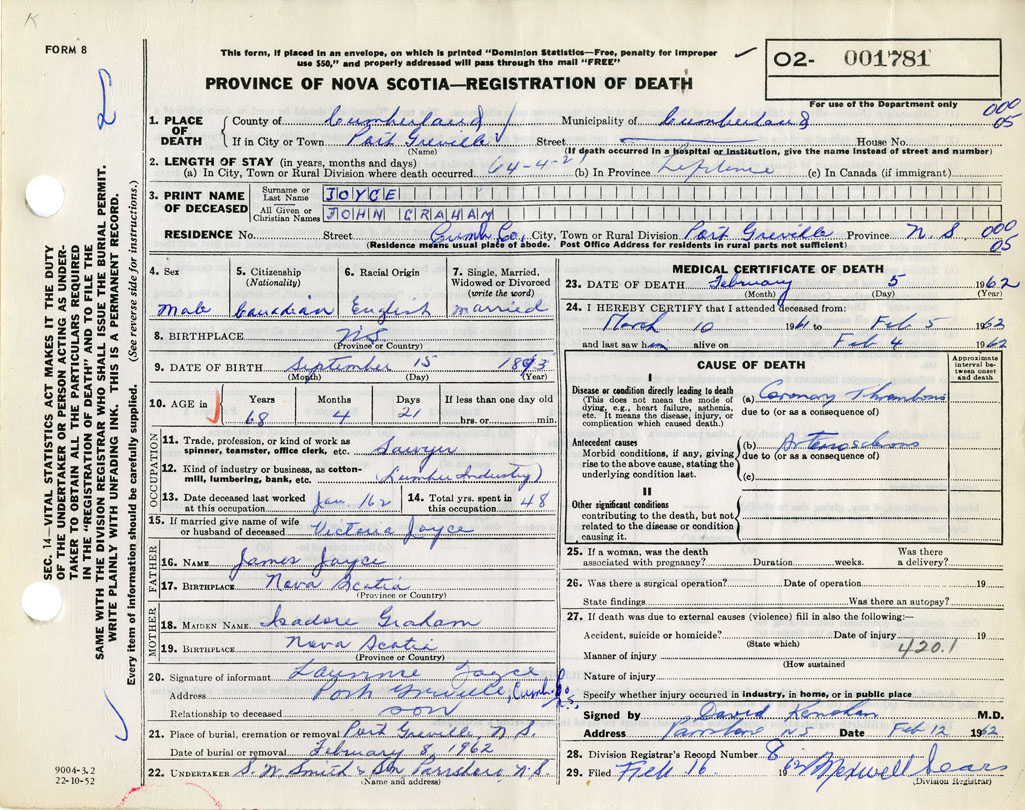 K
FORM 8
This form, if placed in an envelope, on which is printed "Dominion Statistics—Free, penalty for improper
use $50," and properly addressed will pass through the mail "FREE"
PROVINCE OF NOVA SCOTIA—REGISTRATION OF DEATH
O2- 001781
For use of the Department only
000
05
1. PLACE OF DEATH
County of Cumberland Municipality of Cumberland
If in City or Town Port Greville Street House No.
(Name) (If death occurred in a hospital or institution, give the name instead of street and number)
2. LENGTH OF STAY (in years, months and days)
(a) In City, Town or Rural Division where death occurred 64-4-21 (b) In Province Lifetime (c) In Canada (if immigrant)
3. PRINT NAME OF DECEASED
Surname or Last Name JOYCE
All Given or Christian Names JOHN GRAHAM
RESIDENCE No. Street Cumb. Co. City, Town or Rural Division Port Greville Province N.S. 000
05
(Residence means usual place of abode. Post Office Address for residents in rural parts not sufficient)
4. Sex
Male
5. Citizenship
(Nationality)
Canadian
6. Racial Origin
English
7. Single, Married,
Widowed or Divorced
(write the word)
Married
8. BIRTHPLACE NS
(Province or Country)
9. DATE OF BIRTH September 15 1893
(Month) (Day) (Year)
10. AGE in
Years Months Days If less than one day old
68 4 21 hrs. or min.
OCCUPATION
11. Trade, profession, or kind of work as
spinner, teamster, office clerk, etc. Sawyer
12. Kind of industry or business, as cotton-
mill, lumbering, bank, etc. (Lumber Industry)
13. Date deceased last worked
at this occupation Jan. 162
14. Total yrs. spent in
this occupation 48
15. If married give name of wife
or husband of deceased Victoria Joyce
FATHER
16. NAME James Joyce
17. BIRTHPLACE Nova Scotia
(Province or Country)
MOTHER
18. MAIDEN NAME Isadore Graham
19. BIRTHPLACE Nova Scotia
(Province or Country)
20. Signature of informant Joyce
Address Port Greville, Cumb. Co
N.S.
Relationship to deceased son
21. Place of burial, cremation or removal Port Greville, N.S.
Date of burial or removal February 8, 1962
22. UNDERTAKER S. W. Smith & Son Parrsboro, N.S.
(Name and address)
MEDICAL CERTIFICATE OF DEATH
23. DATE OF DEATH February 5 1962
(Month) (Day) (Year)
24. I HEREBY CERTIFY that I attended deceased from:
March 10 1961 to Feb 5 1962
and last saw him alive on Feb 4 1962
CAUSE OF DEATH
Approximate
interval be-
tween onset
and death
I
Disease or condition directly leading to death
(This does not mean the mode of
dying, e.g., heart failure, asthenia,
etc. It means the disease, injury, or
complication which caused death.)
(a) Coronary Thrombosis
due to (or as a consequence of)
Antecedent causes
Morbid conditions, if any, giving
rise to the above cause, stating the
underlying condition last.
(b) Arteriosclerosis
due to (or as a consequence of)
(c)
II
Other significant conditions
contributing to the death, but not
related to the disease or condition
causing it.
25. If a woman, was the death
associated with pregnancy? Duration weeks. Was there
a delivery?
26. Was there a surgical operation? Date of operation 19
State findings Was there an autopsy?
27. If death was due to external causes (violence) fill in also the following:—
Accident, suicide or homicide? Date of injury 19
(State which)
420.1
Manner of injury
(How sustained
Nature of injury
Specify whether injury occurred in industry, in home, or in public place
Signed by David M.D.
Address Parrsboro N.S Date Feb 12 1962
28. Division Registrar's Record Number 8
29. Filed Feb 16 1962 Maxwell Sears
(Division Registrar)
SEC. 14—VITAL STATISTICS ACT MAKES IT THE DUTY
OF THE UNDERTAKER OR PERSON ACTING AS UNDER-
TAKER TO OBTAIN ALL THE PARTICULARS REQUIRED
IN THE "REGISTRATION OF DEATH" AND TO FILE THE
SAME WITH THE DIVISION REGISTRAR WHO SHALL ISSUE THE BURIAL PERMIT.
WRITE PLAINLY WITH UNFADING INK. THIS IS A PERMANENT RECORD.
Every item of information should be carefully supplied. (See reverse side for instructions.)
2
9004-3.2
22-10-52